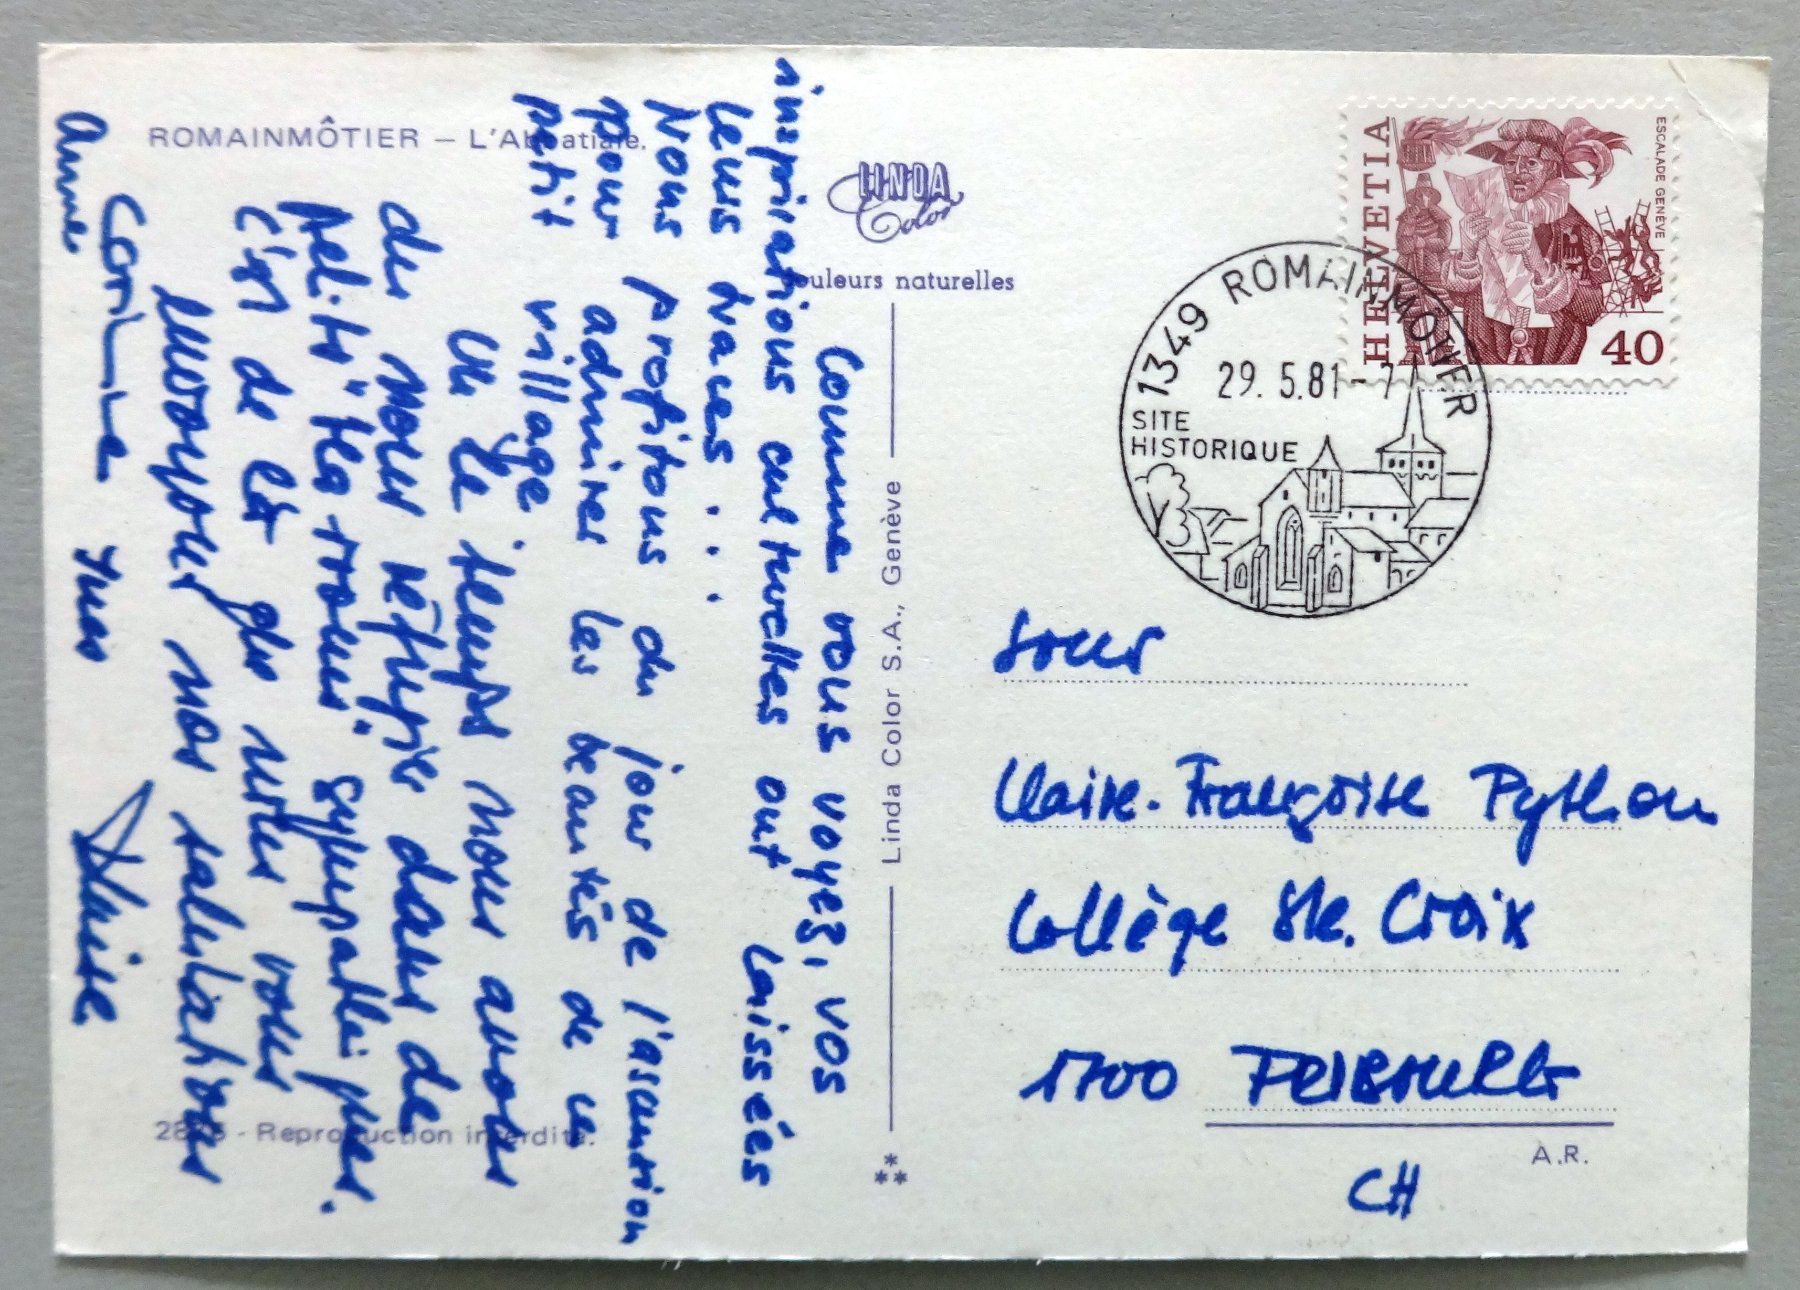 ROMAINMÔTIER – L'Abbatiale.
LINDA
Color
Couleurs naturelles
Linda Color S.A., Genève
HELVETIA
ESCALADE GENÈVE
40
1349 ROMAINMÔTIER
29.5.81-7
SITE
HISTORIQUE
Comme vous voyez, vos
inspirations culturelles ont laissées
leus traces...
Nous profitons du jour de l'ascension
pour admirer les beautés de ce
petit village
le temps nous avons
du nous réfugier dans de
petits sympathiques.
C'est de là que nous vous
envoyons nos salutations
Anne Corinne Yves
Soeur
Claire-Françoise Python
Collège Ste. Croix
1700 FRIBOURG
CH
- Reproduction interdite.
A.R.